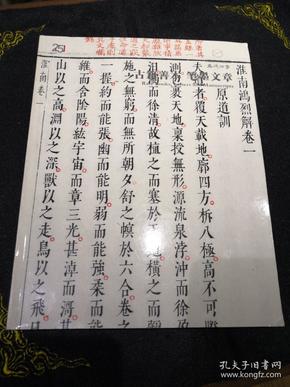 淮南鴻烈解卷一
原道訓
夫道者覆天載地廓四方柝八極高不可際
測包裹天地稟授無形源流泉浡沖而徐盈
汩汩而徐清故植之而塞於天地橫之而彌
施之無窮而無所朝夕舒之幎於六合卷之
一握約而能張幽而能明弱而能強柔而能
維而含陰陽紘宇宙而章三光甚淖而滒甚
山以之高淵以之深獸以之走鳥以之飛日
淮南卷一
251
古籍善
笔墨文章
孔夫子旧书网